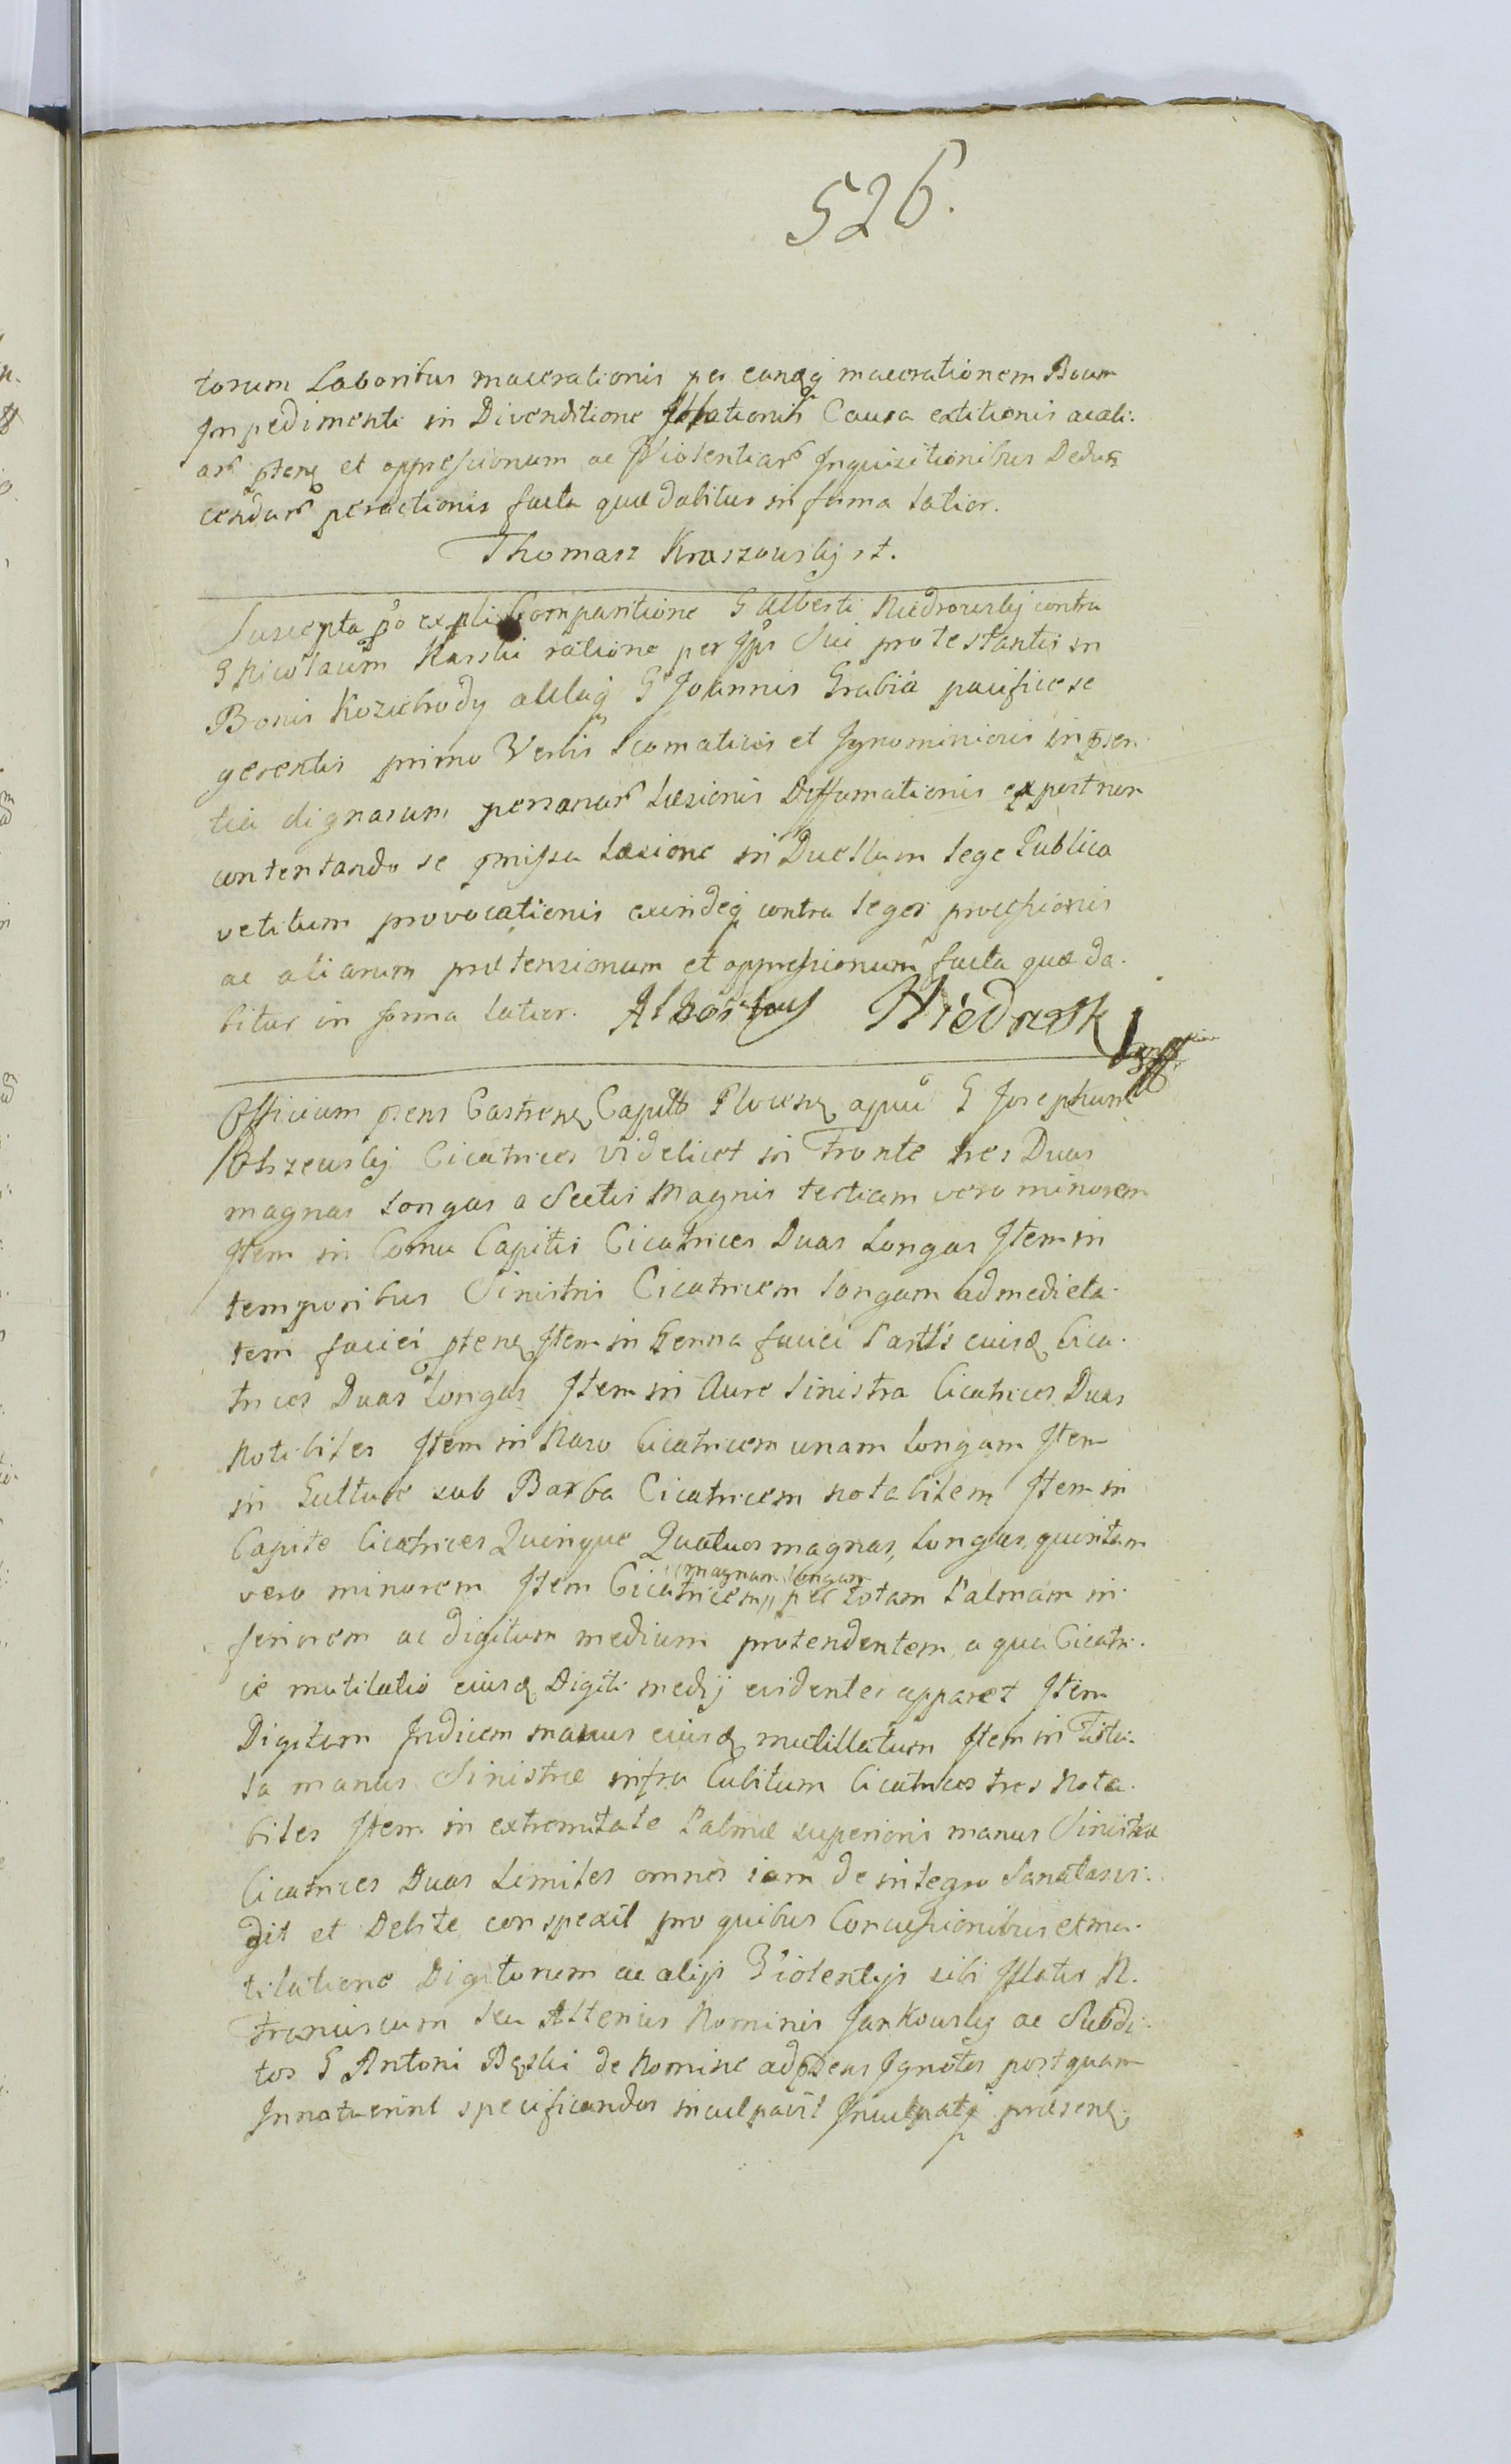 526.
torum Laboribus macerationis per eandq macerationem Boum
Impedimenti in Divenditione Illationis Causa extitionis ac ali:
ar ptens et oppressionum ac Violentiar Inquisitionibus Dedu
cendar peractionis facta quæ dabitur in forma latior.
Thomasz Kraszowskj
Suscepta po expli Comparitione G Alberti Niedrowskj contra
G Nicolaum Karski ratione per Ips Sui protestantis in
Bonis Koziebrody allaq G Joannis Grabia pacifice se
gerentis primo Verbis Scomaticis et Ignominiosis in psen
tia dignarum personar Læsionis Deffamationis expost non
contentando se pmissa Læsione in Duellum lege Publica
vetitum provocationis exindeq contra leges processionis
ac aliarum prætensionum et oppressionum facta quæ da.
bitur in forma latior. Albertus Niedrosk
Officium psens Castrens Capitle Plocens apud G Josephum
Olszewskj Cicatrices videlicet in Fronte tres Duas
magnas Longas a Sectis Magnis tertiam vero minorem
Item in Cornu Capitis Cicatrices Duas Longas Item in
temporibus Sinistris Cicatricem longam ad medieta.
tem faciei ptens Item in Genna faciei Partis eiusd Cica.
trices Duas Longas Item in Aure Sinistra Cicatrices Duas
Notabiles Item in Naso Cicatricem unam Longam Item
in Gutture sub Barba Cicatricem notabilem Item in
Capite Cicatrices Quinque Quatuor magnas, Longas, quintam
magnam longam
vero minorem Item Cicatricem per totam Palmam in
feriorem ac digitum medium protendentem a qua Cicatri.
ce mutilatio eiusd Digiti medij evidenter apparet Item
Digitum Indicem manus eiusd mutillatum Item in Fistu:
la manus Sinistræ infra Cubitum Cicatrices tres Nota.
biles Item in extremitate Palmæ superioris manus Sinistræ
Cicatrices Duas Similes omnes iam de integro Sanatas vi:
dit et Debite conspexit pro quibus Concussionibus et mu.
tilatione Digitorum ac alijs Violentijs sibi Illatis N.
Franciscum seu Alterius Nominis Jankowskj ac Subdi.
tos G Antoni Bęski de Nomine ad pdens Ignotos postquam
Innotuerint specificandos inculpavit Inculpatq præsens